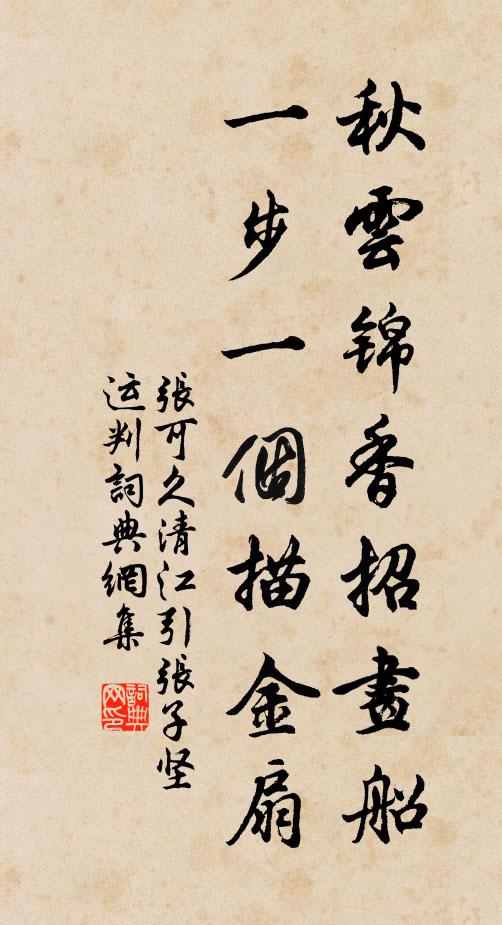 秋雲锦香招畫船
一步一個描金扇
張可久清江引張子坚
运判詞典網集
詞典网印